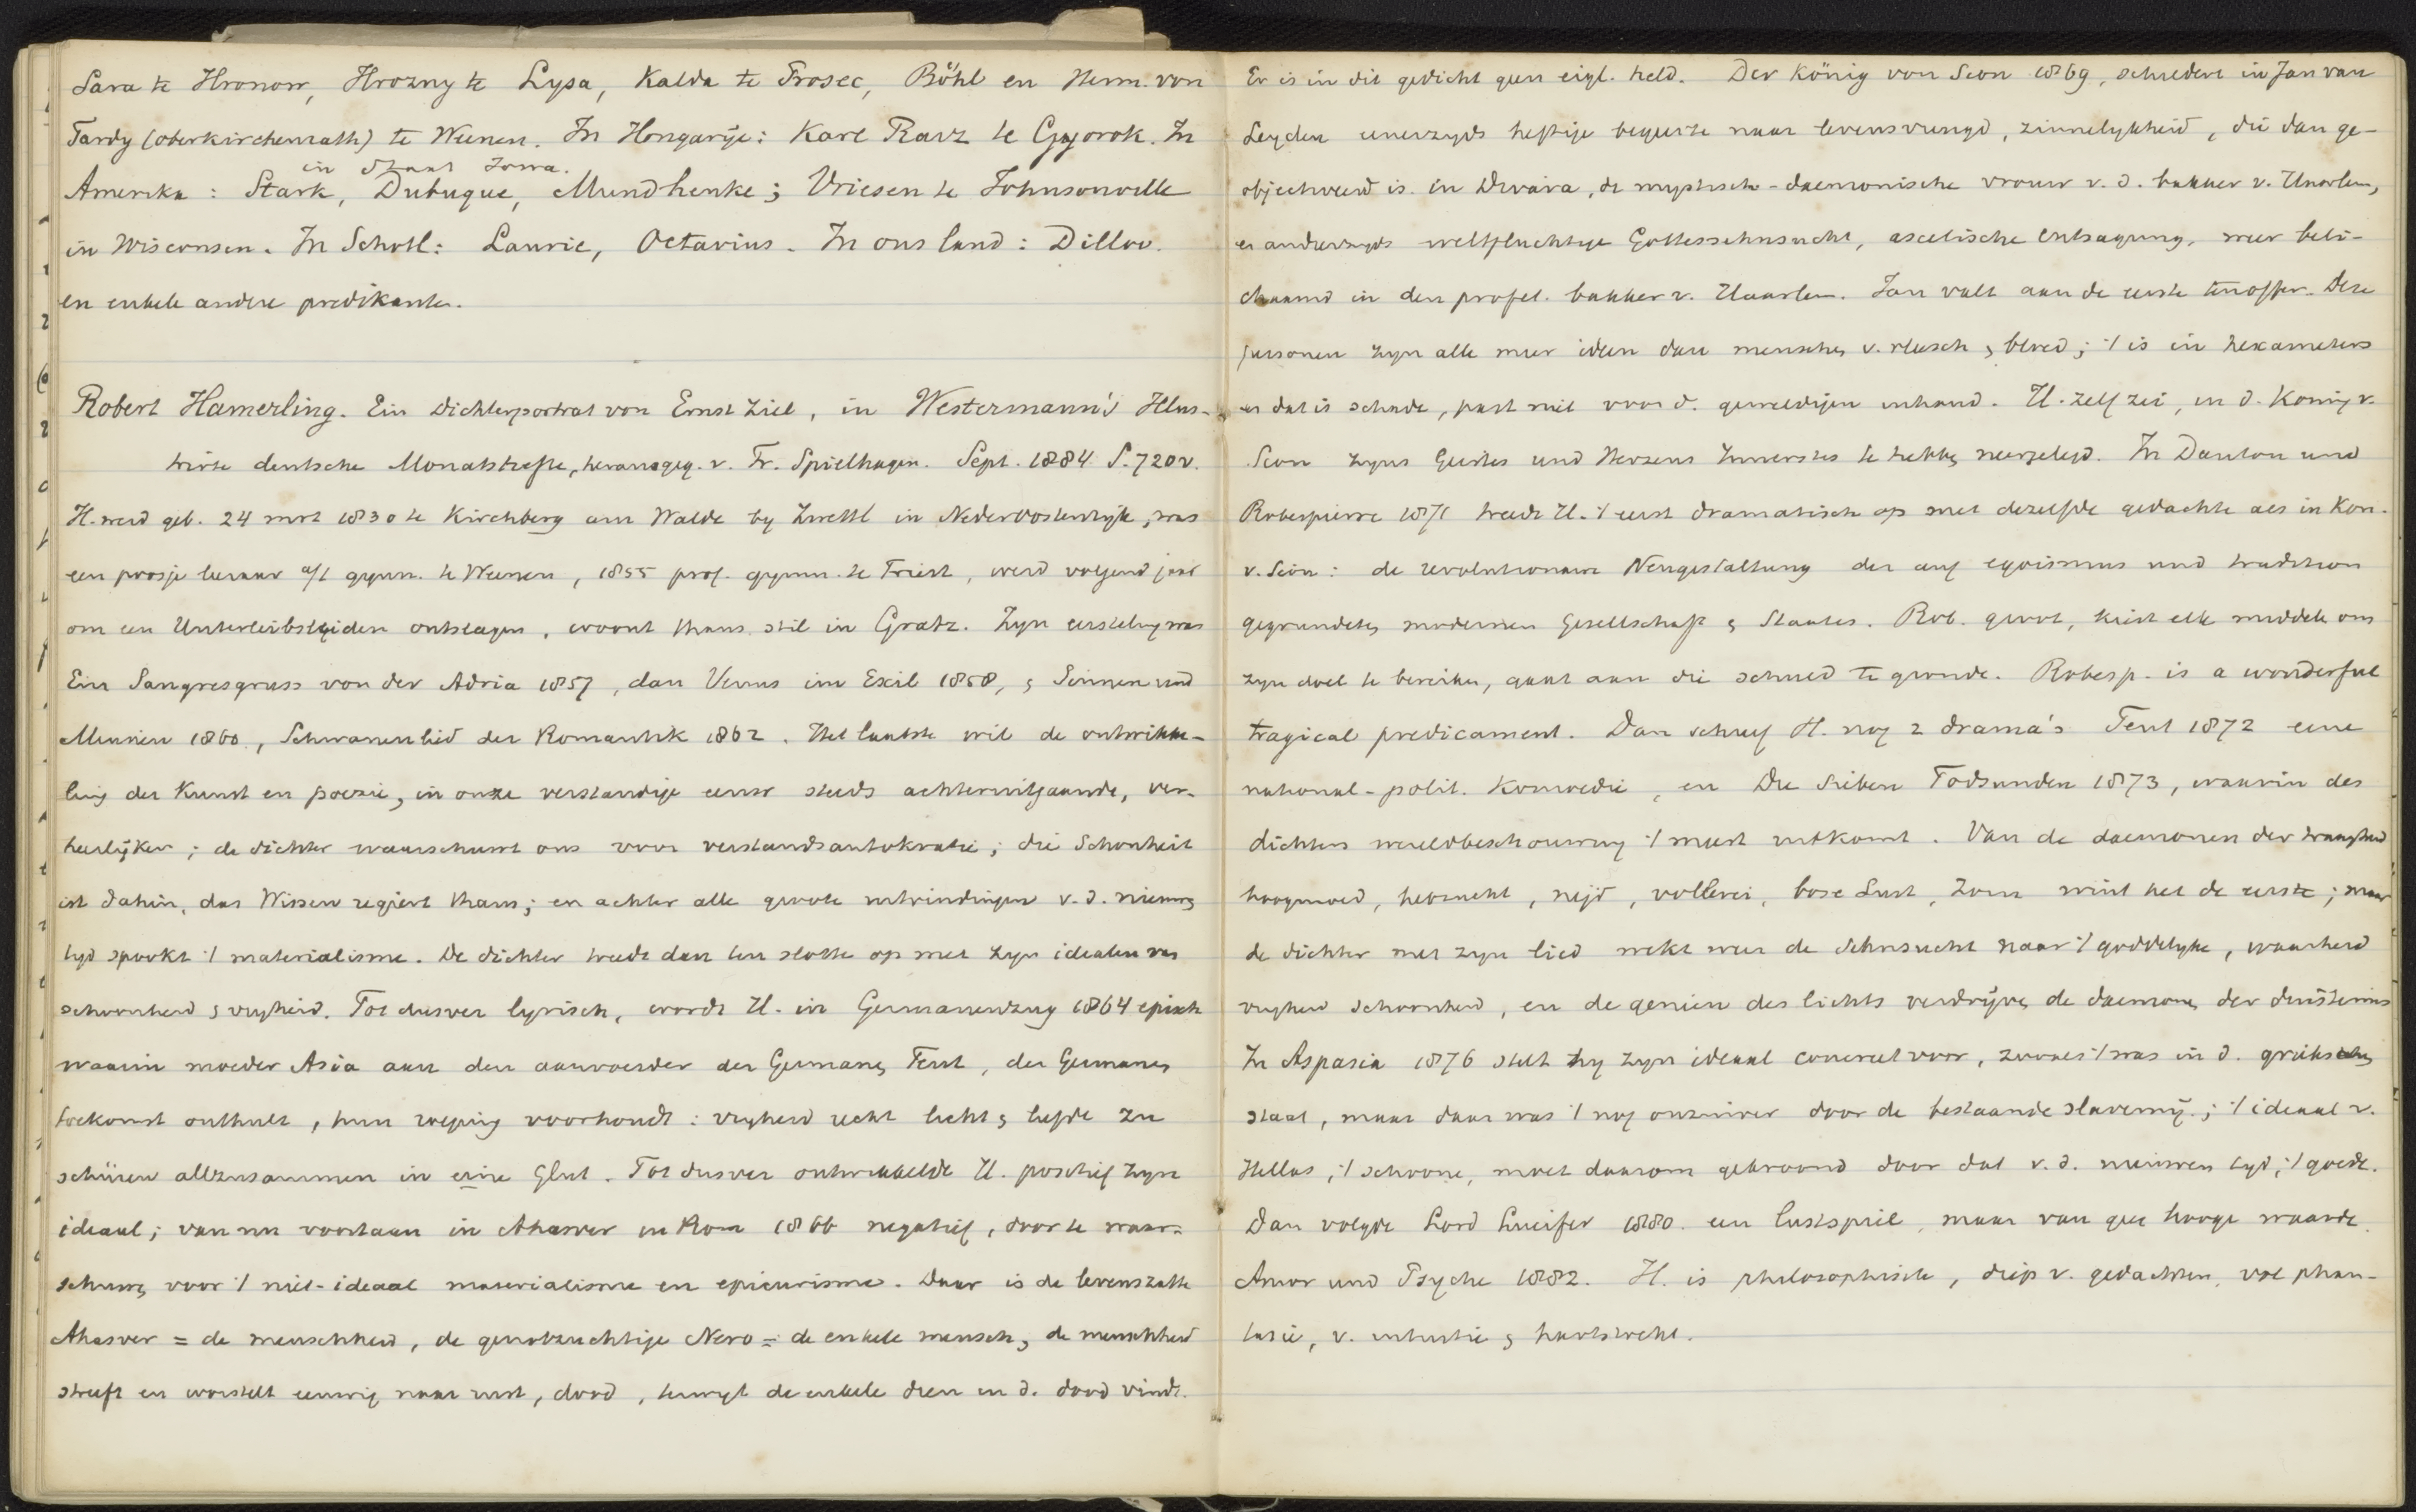 Sara te Hronow, Hrozny te Lysa, Kalda te Prosec, Böhl en Herm. von
Tardy (oberkirchenrath) te Weenen. In Hongarije: Karl Racz te Gyorok. In
in Staat Iowa.
Amerika: Stark, Dubuque, Mundhenke; Vriesen te Johnsonville
in Wisconsen. In Schotl: Laurie, Octavius. In ons land: Dilloo.
en enkele andere predikanten.
Robert Hamerling. Ein Dichterportrat von Ernst Ziel, in Westermann's Illus-
trirte deutsche Monatshefte, herausgeg. v. Fr. Spielhagen. Sept. 1884 S. 720 v.
H. werd geb. 24 mrt 1830 te Kirchberg am Walde by Zwettl in Nederoostenryk, was
een poosje leeraar a/t gymn. te Weenen, 1855 prof. gymn. te Triest, werd volgend jaar
om een Unterleibsleiden ontslagen, woont thans stil in Gratz. Zyn eersteling was
Ein Sangesgruss von der Adria 1857, dan Venus im Exil 1858, en Sinnen und
Minnen 1860, Schwanenlied der Romantik 1862. Het laatste wil de ontwikke-
ling der Kunst en poezie, in onze verstandige eeuw steeds achteruitgaande, ver-
heerlijken; de dichter waarschuwt ons voor verstandsautokratie; die Schonheit
ist dahin, das Wissen regiert thans; en achter alle groote uitvindingen v.d. nieuwe
tyd spookt 't materialisme. De dichter treedt dan ten slotte op met zyn idealen van
schoonheid en vryheid. Tot dusver lyrisch, wordt H. in Germanenzug 1864 episch
waarin moeder Asia aan den aanvoerder der Germanen Teut, der Germanen
toekomst onthult, hun roeping voorhoudt: vryheid recht licht en liefde zu
schüren allzusammen in eine Glut. Tot dusver ontwikkelde H. positief zyn
ideaal; van nu voortaan in Ahasver in Rom 1866 negatief, door te waar-
schuwen voor 't niet-ideaal materialisme en epicurisme. Daar is de levenszatte
Ahasver = de menschheid, de genotzuchtige Nero = de enkele mensch, de menschheid
streeft en worstelt eeuwig naar rust, dood, terwyl de enkele dien in d. dood vindt.
Er is in dit gedicht geen eigl. held. Der König von Sion 1869, schildert in Jan van
Leyden eenerzyds heftige begeerte naar levensvreugd, zinnelykheid, die dan ge-
objectiveerd is in Divara, de mystisch-daemonische vrouw v. d. bakker v. Haarlem,
en anderzyds weltfluchtige Gottessehnsucht, ascetische Entsagung, weer beli-
chaamd in den profet. bakker v. Haarlem. Jan valt aan de eerste ten offer. Deze
personen zyn alle meer ideen dan menschen v. vleesch en bloed; 't is in hexameters
en dat is schade, past niet voor d. geweldigen inhoud. H. zelf zei, in d. Konig v.
Sion zyns Geistes und Herzens Innerstes te hebben neergelegd. In Danton und
Robespierre 1871 treedt H. 't eerst dramatisch op met dezelfde gedachte als in Kon.
v. Sion: de revolutionaire Neugestaltung der auf egoismus und tradition
gegrundeten modernen Gesellschaft en Staates. Rob. groot, kiest elk middel om
zyn doel te bereiken, gaat aan die schuld te gronde. Robesp. is a wonderful
tragical predicament. Dan schreef H. nog 2 drama's Teut 1872 eene
national-polit. Komoedie, en Die Sieben Todsunden 1873, waarin des
dichters wereldbeschouwing 't meest uitkomt. Van de daemonen der traagheid
hoogmoed, hebzucht, nijd, vollerei, bose Lust, Zorn wint het de eerste; maar
de dichter met zyn lied wekt weer de Sehnsucht naar 't goddelyke, waarheid
vryheid schoonheid, en de genien des lichts verdrijven de daemonen der duisternis
In Aspasia 1876 stelt hy zyn ideaal concreet voor, zooals 't was in d. grieksche
staat, maar daar was 't nog onzuiver door de bestaande slavernij; 't ideaal v.
Hellas, 't schoone, moet daarom gekroond door dat v. d. nieuwen tyd, 't goede.
Dan volgde Lord Lucifer 1880. een lustspiel, maar van geen hooge waarde.
Amor und Psyche 1882. H. is philosophisch, diep v. gedachten, vol phan-
tasie, v. intuitie en hartstocht.